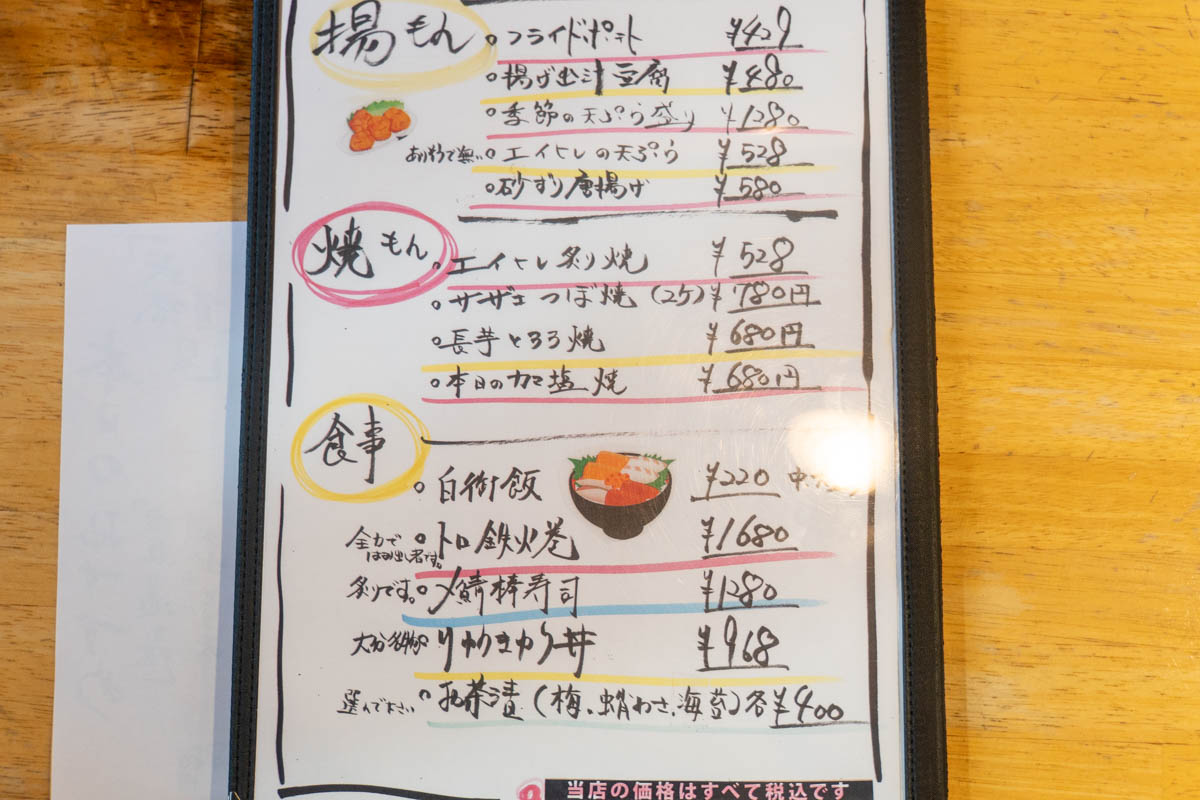 揚もん
フライドポテト ¥429
揚げ出汁豆腐 ¥480
季節の天ぷら盛り ¥1280
ありそうで無い エイヒレの天ぷら ¥528
砂ずり唐揚げ ¥580
焼もん
エイヒレ炙り焼 ¥528
サザエつぼ焼(2ケ) ¥780円
長芋とろろ焼 ¥680円
本日のカマ塩焼 ¥680円
食事
白御飯 ¥220 中
全力ではみ出し者です。 トロ鉄火巻 ¥1680
炙りです。 〆鯖棒寿司 ¥1280
大分名物 りゅうきゅう丼 ¥968
選んで下さい お茶漬(梅、蛸わさ、海苔)各¥400
当店の価格はすべて税込です